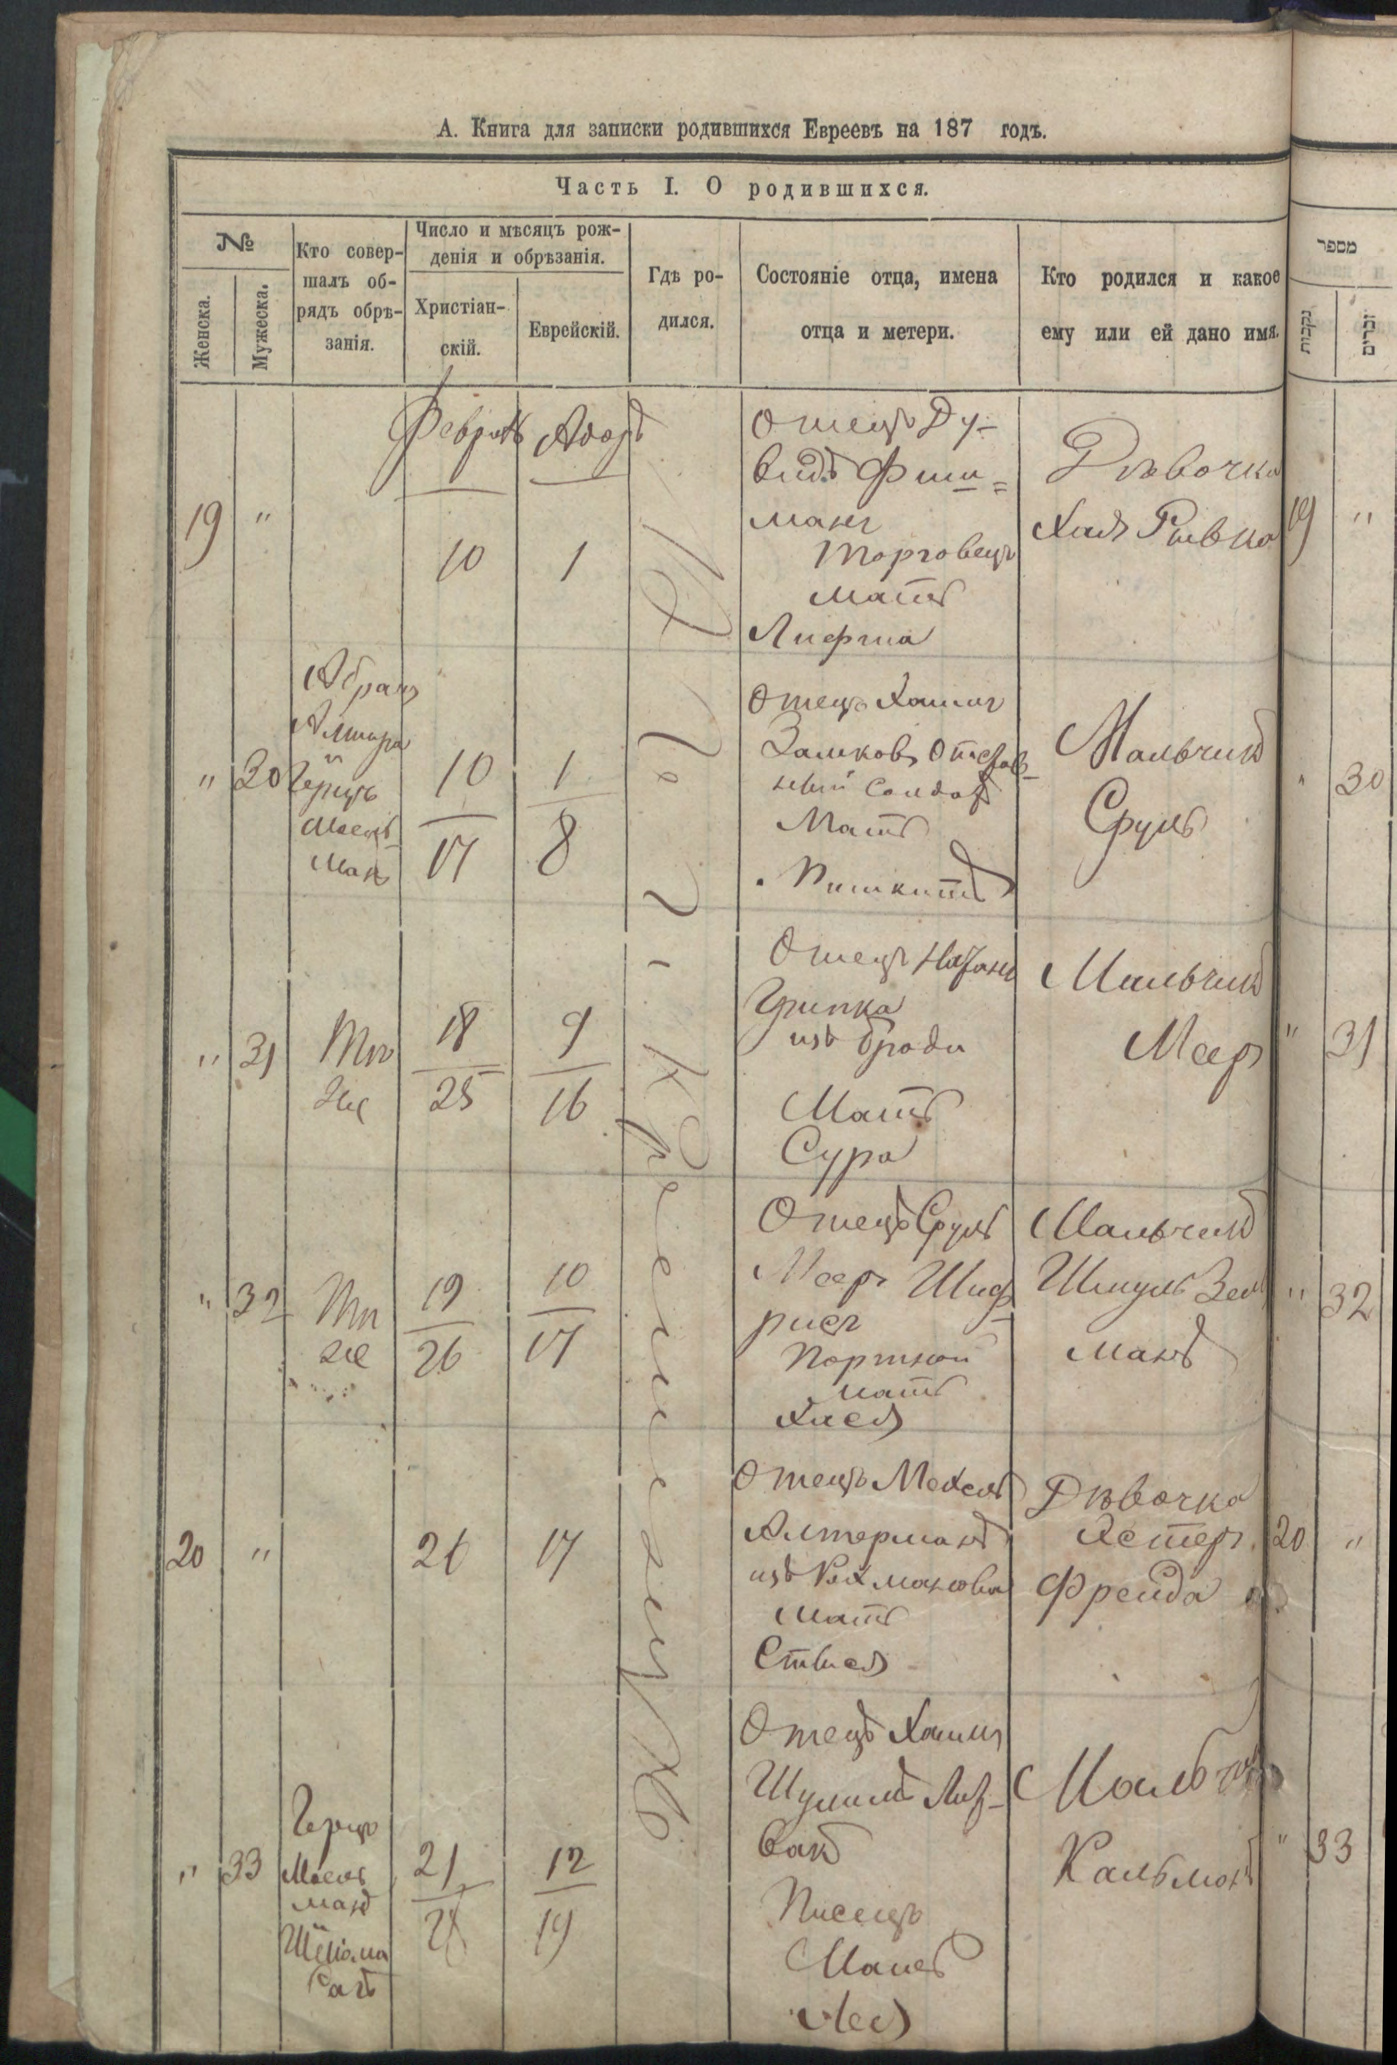 А. Книга для записки родившихся Евреевъ на 187 годъ.
Часть I. О родившихся.
№
Женска.
Мужеска.
Кто совер-
шалъ об-
рядъ обрѣ-
занія.
Число и мѣсяцъ рож-
денія и обрѣзанія.
Христіан-
скій.
Еврейскій.
Гдѣ ро-
дился.
Состояніе отца, имена
отца и метери.
Кто родился и какое
ему или ей дано имя.
מספר
נקבות
זכרים
Февраль Адаръ
19 "
10 1
Отецъ Ду-
видъ Фиш=
манъ
торговецъ
мать
Лифша
Дѣвочка
Хая Ривка
19 "
" 30
Абрамъ
Герцъ
Мосель
Манъ
10
17
1
8
Отецъ Хаимъ
Отстав-
ный солдат
Мать
Мальчикъ
Сруль
" 30
" 31
То
же
18
25
9
16
Отецъ Натанъ
изъ Броди
Мать
Сура
Мальчикъ
Меер
" 31
" 32
То
же
19
26
10
17
Отецъ Сруль
Меер Шиф-
рисъ
Портной
мать
Хася
Мальчикъ
Шмуль Зель
манъ
" 32
20 "
26 17
Отецъ Мехель
Алтерманъ
изъ Рахманова
мать
Дѣвочка
Хестер
Фрейда
20 "
" 33
Герцъ
Мосель
манъ
21
28
12
19
Отецъ Хаимъ
Шулимъ Лит-
вакъ
Писецъ
Мать
Лея
Кальманъ
" 33